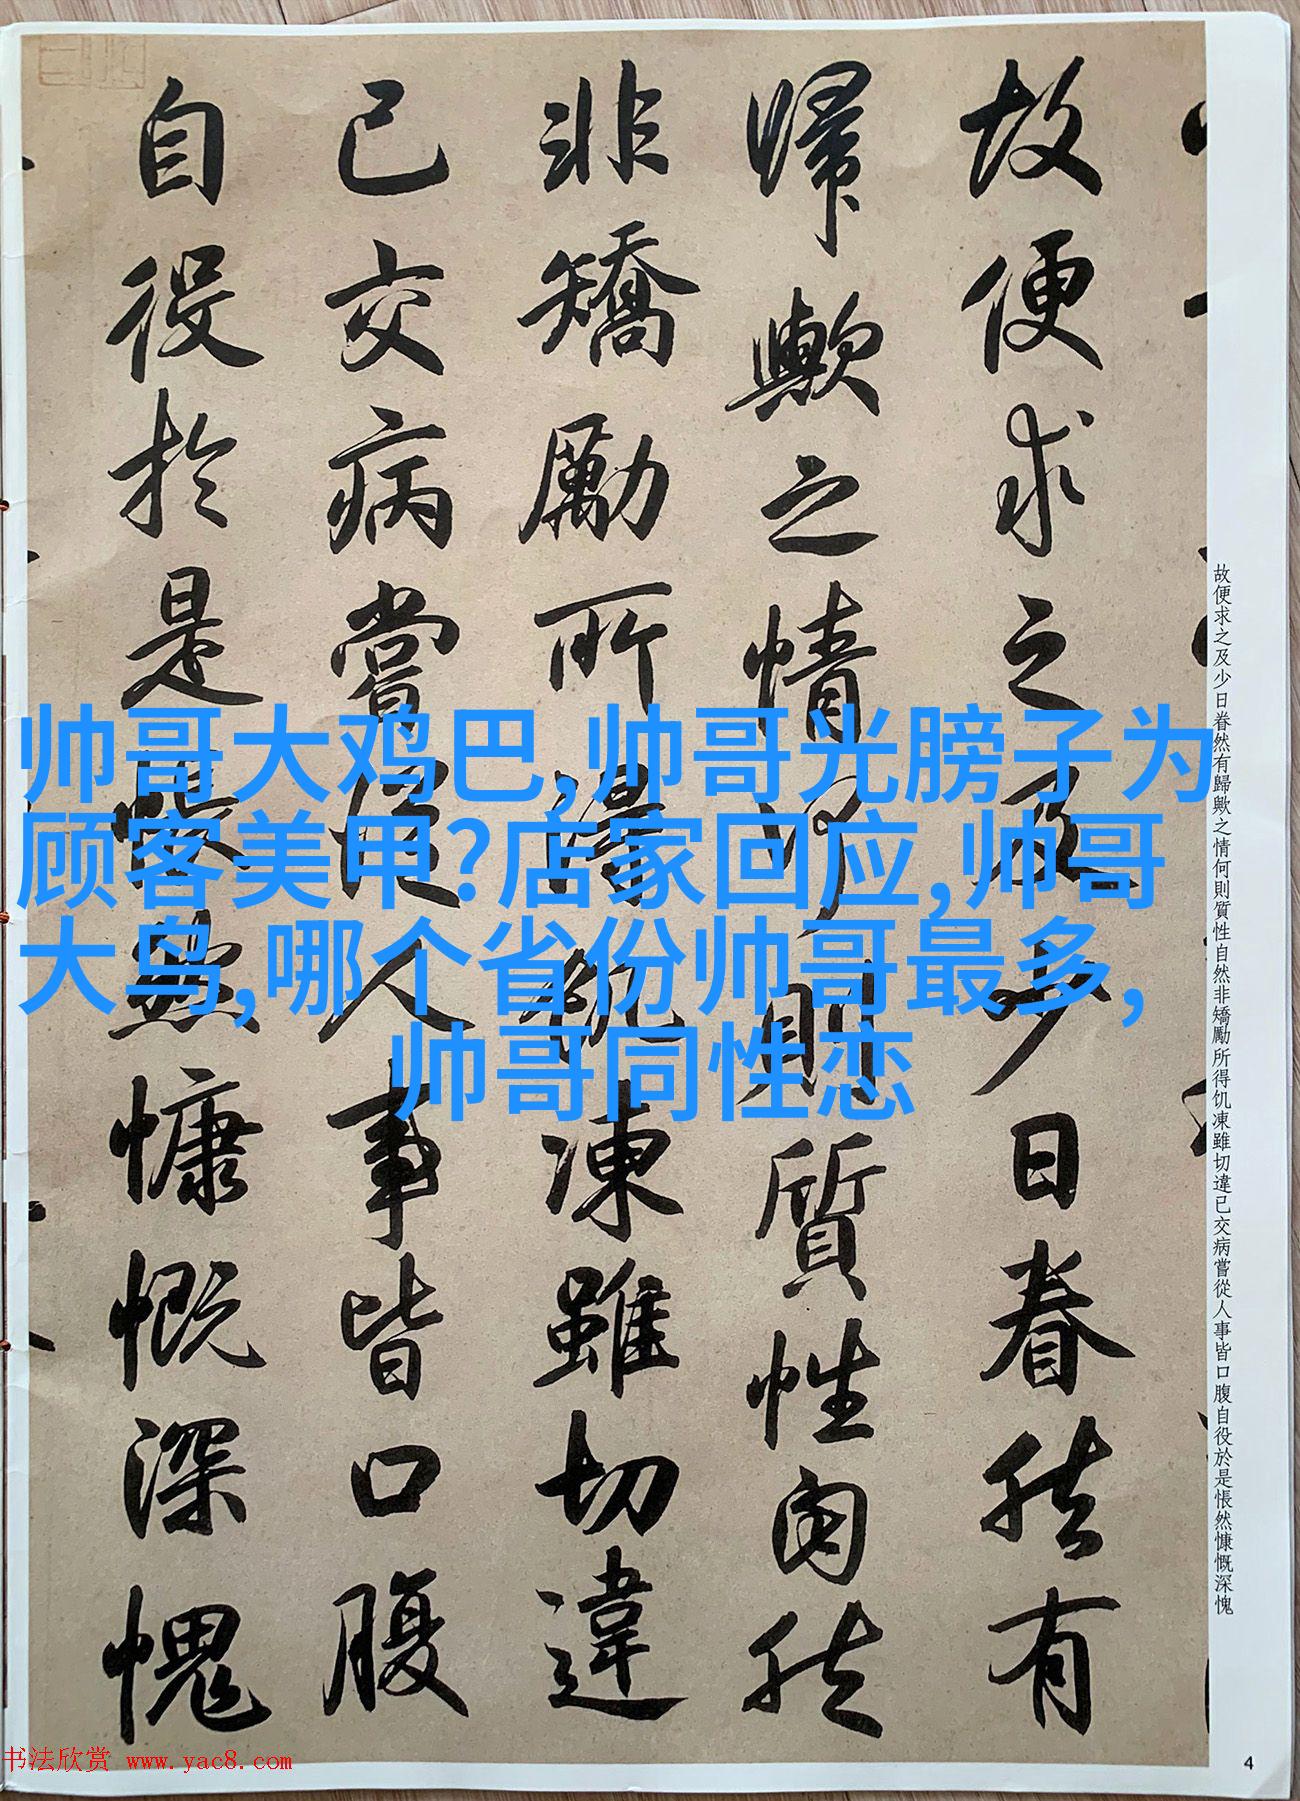 故便求之及少日眷然有
歸歟之情何則質性自然
非矯勵所得飢凍雖切違
已交病嘗從人事皆口腹
自役於是悵然慷慨深愧
故便求之及少日眷然有歸歟之情何則質性自然非矯勵所得饥凍雖切違已交病嘗從人事皆口腹自役於是悵然慷慨深愧
帅哥大鸡巴,帅哥光膀子为
顾客美甲?店家回应,帅哥
大乌,哪个省份帅哥最多,
帅哥同性恋
书法欣赏 www.yac8.com
4